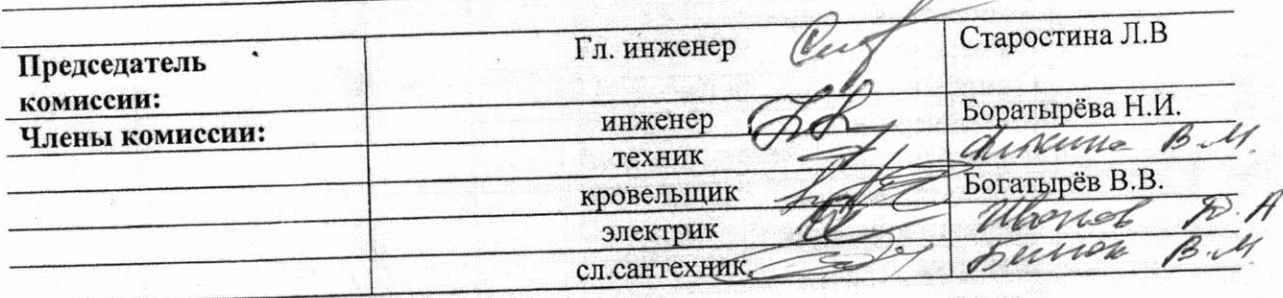 Председатель комиссии: Гл. инженер Старостина Л.В
Члены комиссии: инженер Боратырёва Н.И.
техник В.М.
кровельщик Богатырёв В.В.
электрик Иванов Д.А
сл.сантехник В.М.